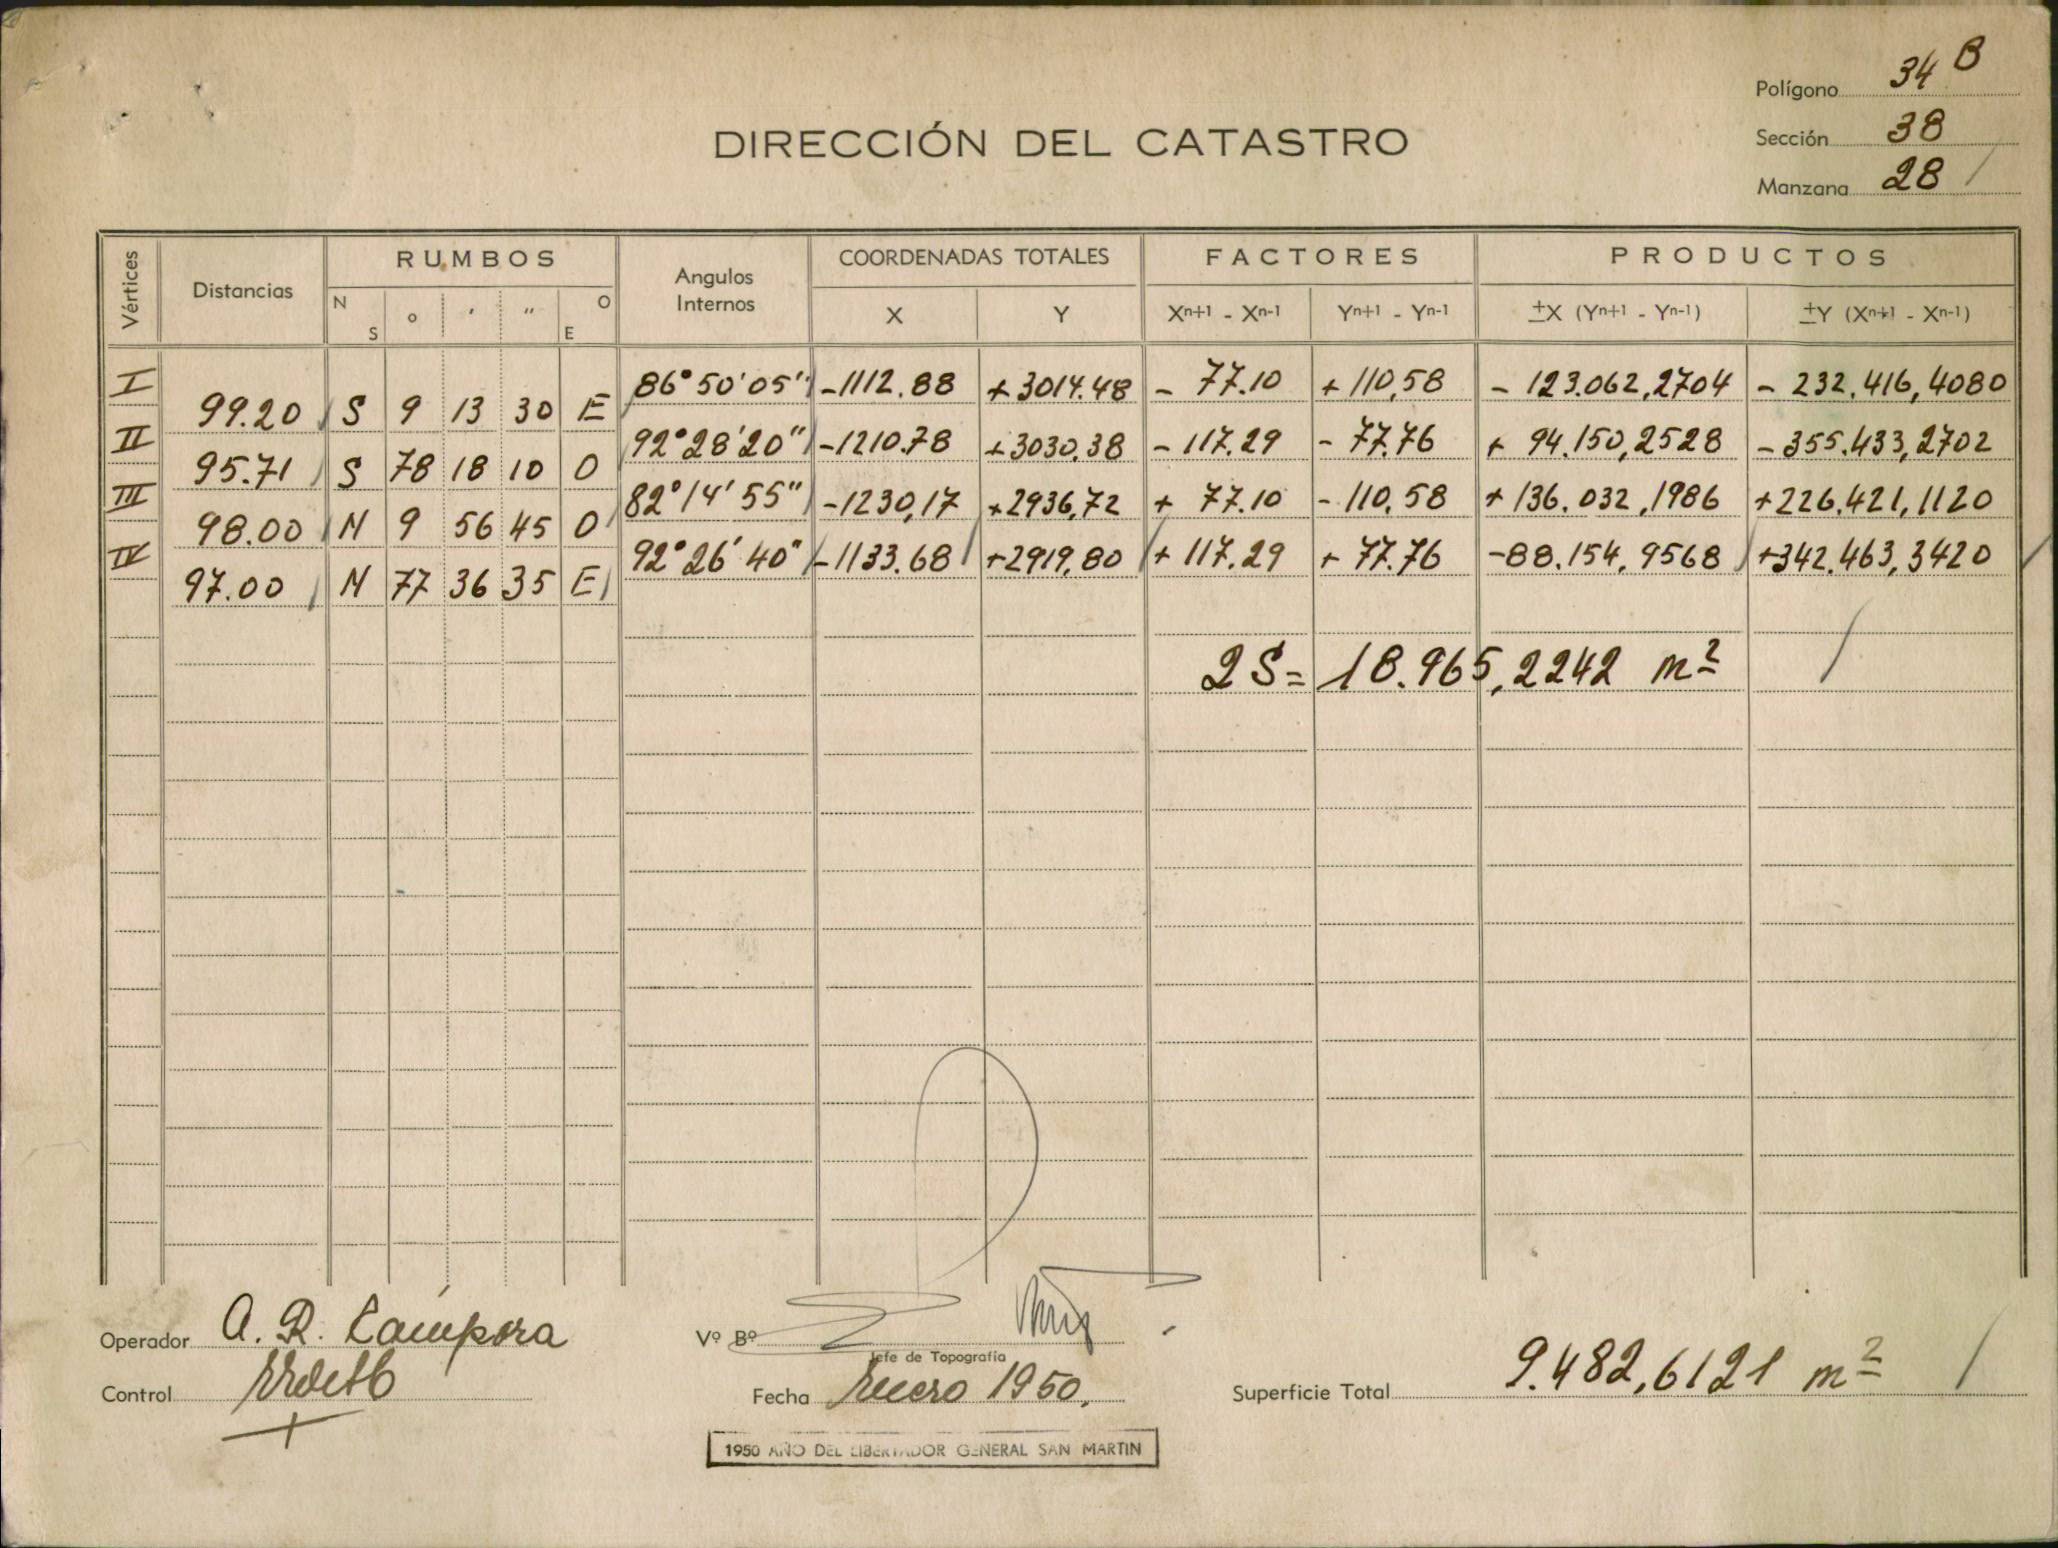 Polígono 34 B
DIRECCIÓN DEL CATASTRO
Sección 38
Manzana 28 /
Vértices Distancias RUMBOS Angulos Internos COORDENADAS TOTALES FACTORES PRODUCTOS
N S o ′ ″ O E X Y Xn+1 - Xn-1 Yn+1 - Yn-1 ±X (Yn+1 - Yn-1) ±Y (Xn+1 - Xn-1)
I 86° 50' 05" -1112.88 +3014.48 - 77.10 +110,58 - 123.062,2704 - 232.416,4080
99.20 S 9 13 30 E
II 92° 28' 20" -1210.78 +3030.38 - 117.29 - 77.76 + 94.150,2528 - 355.433,2702
95.71 S 78 18 10 O
III 82° 14' 55" -1230,17 +2936,72 + 77.10 - 110,58 + 136.032,1986 +226.421,1120
98.00 N 9 56 45 O
IV 92° 26' 40" -1133.68 +2919,80 + 117.29 + 77.76 -88.154,9568 +342.463,3420
97.00 N 77 36 35 E
2S= 18.965,2242 m²
Operador A. R. Campora
Vº Bº
Jefe de Topografía
Control
Fecha Enero 1950.
Superficie Total 9.482,6121 m²
1950 AÑO DEL LIBERTADOR GENERAL SAN MARTIN